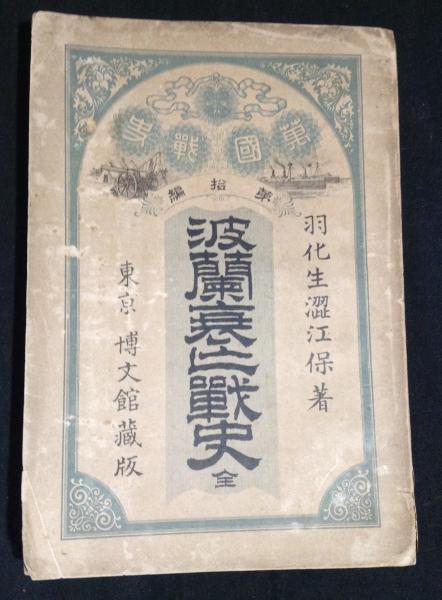 萬國戰史
第拾編
羽化生澀江保著
波蘭衰亡戰史 全
東京 博文館藏版